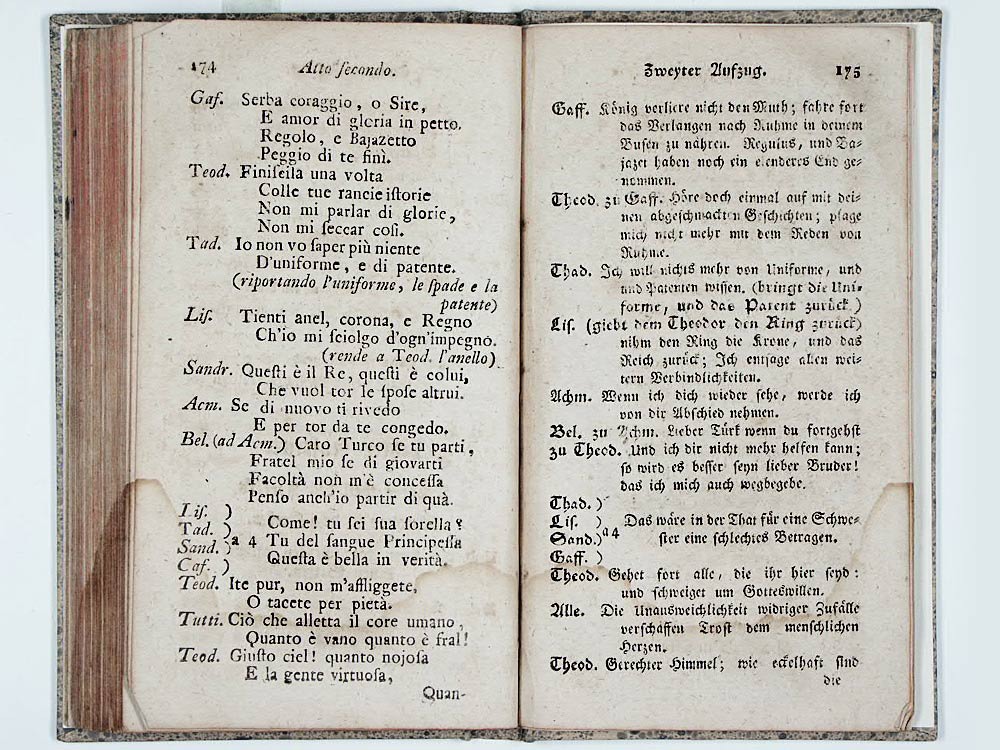 174 Atto ſecondo.
Gaf. Serba coraggio, o Sire,
E amor di gloria in petto.
Regolo, e Bajazetto
Peggio di te finì.
Teod. Finiſcila una volta
Colle tue rancie iſtorie
Non mi parlar di glorie,
Non mi ſeccar coſì.
Tad. Io non vo ſaper più niente
D'uniforme, e di patente.
(riportando l'uniforme, le ſpade e la
patente)
Liſ. Tienti anel, corona, e Regno
Ch'io mi ſciolgo d'ogn'impegno.
(rende a Teod. l'anello)
Sandr. Queſti è il Re, queſti è colui,
Che vuol tor le ſpoſe altrui.
Acm. Se di nuovo ti rivedo
E per tor da te congedo.
Bel. (ad Acm.) Caro Turco ſe tu parti,
Fratel mio ſe di giovarti
Facoltà non m'è conceſſa
Penſo anch'io partir di quà.
Liſ. )
Tad. ) Come! tu ſei ſua ſorella?
Sand. ) a 4 Tu del ſangue Principeſſa
Caf. ) Queſta è bella in verità.
Teod. Ite pur, non m'affliggete,
O tacete per pietà.
Tutti. Ciò che alletta il core umano,
Quanto è vano quanto è fral!
Teod. Giuſto ciel! quanto nojoſa
E la gente virtuoſa,
Quan-
Zweyter Aufzug. 175
Gaff. König verliere nicht den Muth; fahre fort
das Verlangen nach Ruhme in deinem
Buſen zu nähren. Regulus, und Ba-
jazet haben noch ein elenderes End ge-
nommen.
Theod. zu Gaff. Höre doch einmal auf mit dei-
nen abgeſchmackten Geſchichten; plage
mich nicht mehr mit dem Reden von
Ruhme.
Thad. Ich will nichts mehr von Uniforme, und
und Patenten wiſſen. (bringt die Uni-
forme, und das Patent zurück.)
Liſ. (giebt dem Theodor den Ring zurück)
nihm den Ring die Krone, und das
Reich zurück; Ich entſage allen wei-
tern Verbindlichkeiten.
Achm. Wenn ich dich wieder ſehe, werde ich
von dir Abſchied nehmen.
Bel. zu Achm. Lieber Türk wenn du fortgehſt
zu Theod. Und ich dir nicht mehr helfen kann;
ſo wird es beſſer ſeyn lieber Bruder!
das ich mich auch wegbegebe.
Thad. )
Liſ. ) Das wäre in der That für eine Schwe-
Sand.) a 4 ſter eine ſchlechtes Betragen.
Gaff. )
Theod. Gehet fort alle, die ihr hier ſeyd:
und ſchweiget um Gotteswillen.
Alle. Die Unausweichlichkeit widriger Zufälle
verſchaffen Troſt dem menſchlichen
Herzen.
Theod. Gerechter Himmel; wie eckelhaft ſind
die